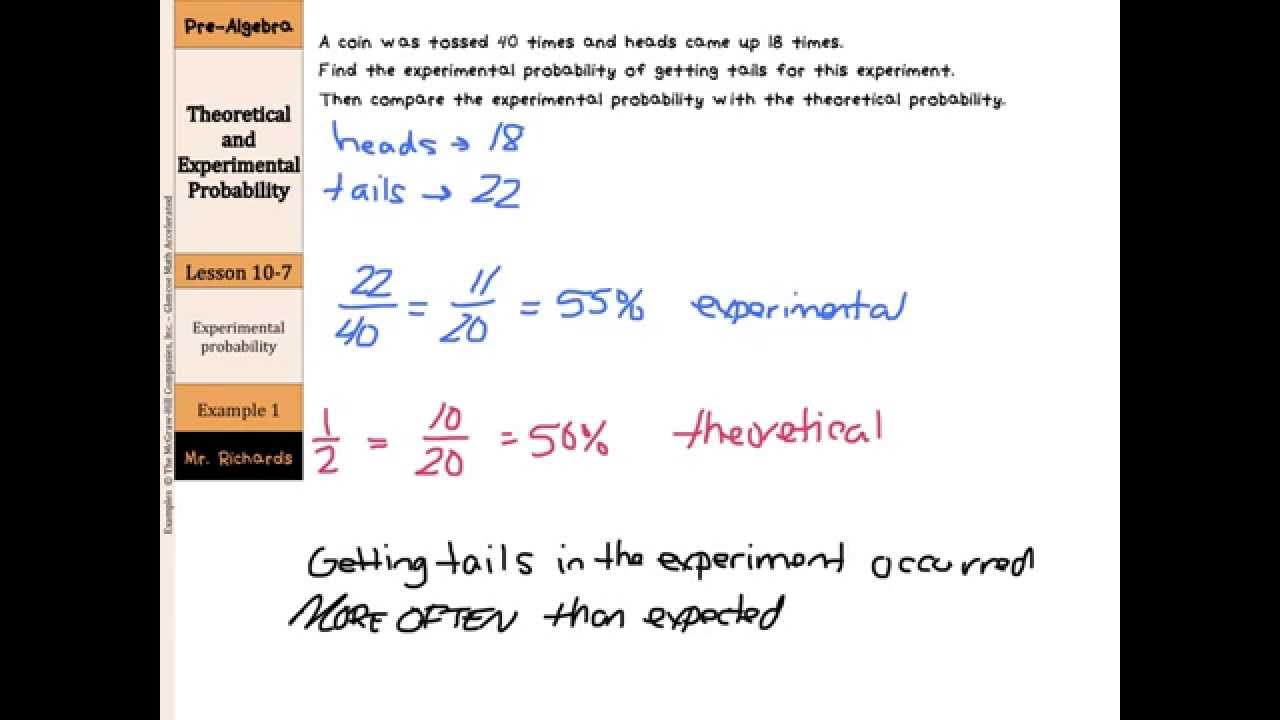 Pre-Algebra
Theoretical
and
Experimental
Probability
Lesson 10-7
Experimental
probability
Example 1
Mr. Richards
Examples © The McGraw-Hill Companies, Inc. - Glencoe Math Accelerated
A coin was tossed 40 times and heads came up 18 times.
Find the experimental probability of getting tails for this experiment.
Then compare the experimental probability with the theoretical probability.
heads → 18
tails → 22
22/40 = 11/20 = 55% experimental
1/2 = 10/20 = 50% theoretical
Getting tails in the experiment occurred
MORE OFTEN than expected